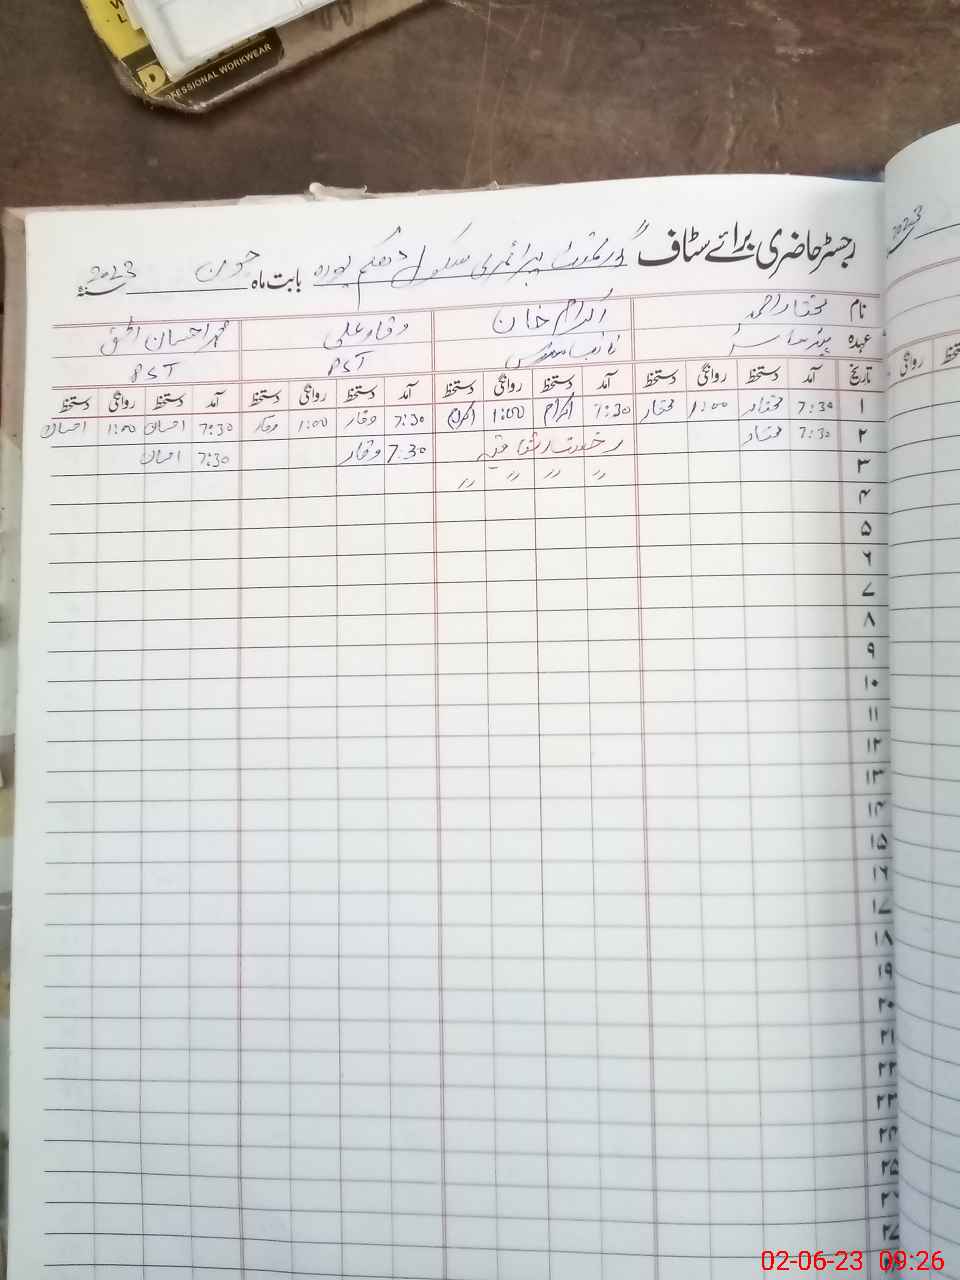 PROFESSIONAL WORKWEAR
رجسٹر حاضری برائے سٹاف گورنمنٹ پرائمری سکول دھکم پورہ بابت ماہ جون سنہ 2023
2023
نام مختار احمد اکرام خان وقار علی محمد احسان الحق
عہدہ PST PST
تاریخ آمد دستخط روانگی دستخط آمد دستخط روانگی دستخط آمد دستخط روانگی دستخط آمد دستخط روانگی دستخط
روانگی دستخط
۱ 7:30 مختار 1:00 مختار 7:30 اکرام 1:00 اکرام 7:30 وقار 1:00 وقار 7:30 احسان 1:00 احسان
۲ 7:30 مختار رخصت اتفاقیہ 7:30 وقار 7:30 احسان
۳ 〃 〃 〃 〃
۴
۵
۶
۷
۸
۹
۱۰
۱۱
۱۲
۱۳
۱۴
۱۵
۱۶
۱۷
۱۸
۱۹
۲۰
۲۱
۲۲
۲۳
۲۴
۲۵
۲۶
۲۷
02-06-23 09:26